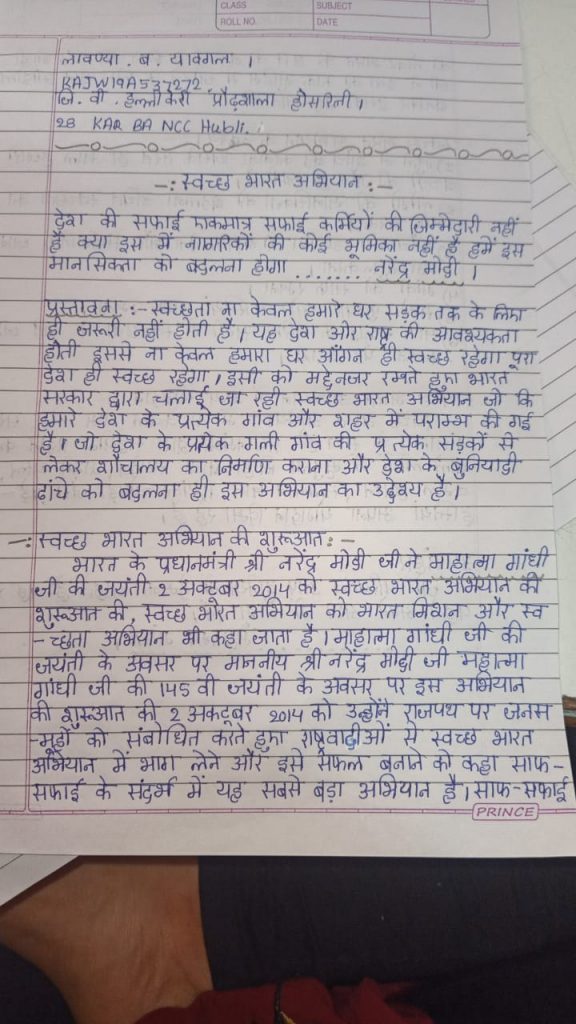 CLASS SUBJECT
ROLL NO. DATE
लावण्या . ब . यावगल ।
KAJW19A537272
जि. वी . हल्लीकेरी प्रौढ़शाला होसरित्ती ।
28 KAR BA NCC Hubli.
-: स्वच्छ भारत अभियान :-
देश की सफाई एकमात्र सफाई कर्मियों की जिम्मेदारी नहीं
है क्या इस में नागरिकों की कोई भूमिका नहीं है हमें इस
मानसिकता को बदलना होगा ....... नरेंद्र मोदी ।
प्रस्तावना :- स्वच्छता ना केवल हमारे घर सड़क तक के लिए
ही जरूरी नहीं होती है । यह देश और राष्ट्र की आवश्यकता
होती इससे ना केवल हमारा घर आँगन ही स्वच्छ रहेगा पूरा
देश ही स्वच्छ रहेगा । इसी को मद्देनजर रखते हुए भारत
सरकार द्वारा चलाई जा रही स्वच्छ भारत अभियान जो कि
हमारे देश के प्रत्येक गांव और शहर में पराम्भ की गई
है । जो देश के प्रत्येक गली गांव की प्रत्येक सड़कों से
लेकर शौचालय का निर्माण कराना और देश के बुनियादी
ढ़ांचे को बदलना ही इस अभियान का उद्देश्य है ।
-: स्वच्छ भारत अभियान की शुरूआत :-
भारत के प्रधानमंत्री श्री नरेंद्र मोदी जी ने माहात्मा गांधी
जी की जयंती 2 अक्टूबर 2014 को स्वच्छ भारत अभियान की
शुरूआत की, स्वच्छ भारत अभियान को भारत मिशन और स्व
-च्छता अभियान भी कहा जाता है । माहात्मा गांधी जी की
जयंती के अवसर पर माननीय श्री नरेंद्र मोदी जी महात्मा
गांधी जी की 145 वी जयंती के अवसर पर इस अभियान
की शुरूआत की 2 अक्टूबर 2014 को उन्होंने राजपथ पर जनस
-मूहों को संबोधित करते हुए राष्ट्रवादीओं से स्वच्छ भारत
अभियान में भाग लेने और इसे सफल बनाने को कहा साफ-
सफाई के संदर्भ में यह सबसे बड़ा अभियान है । साफ-सफाई
PRINCE